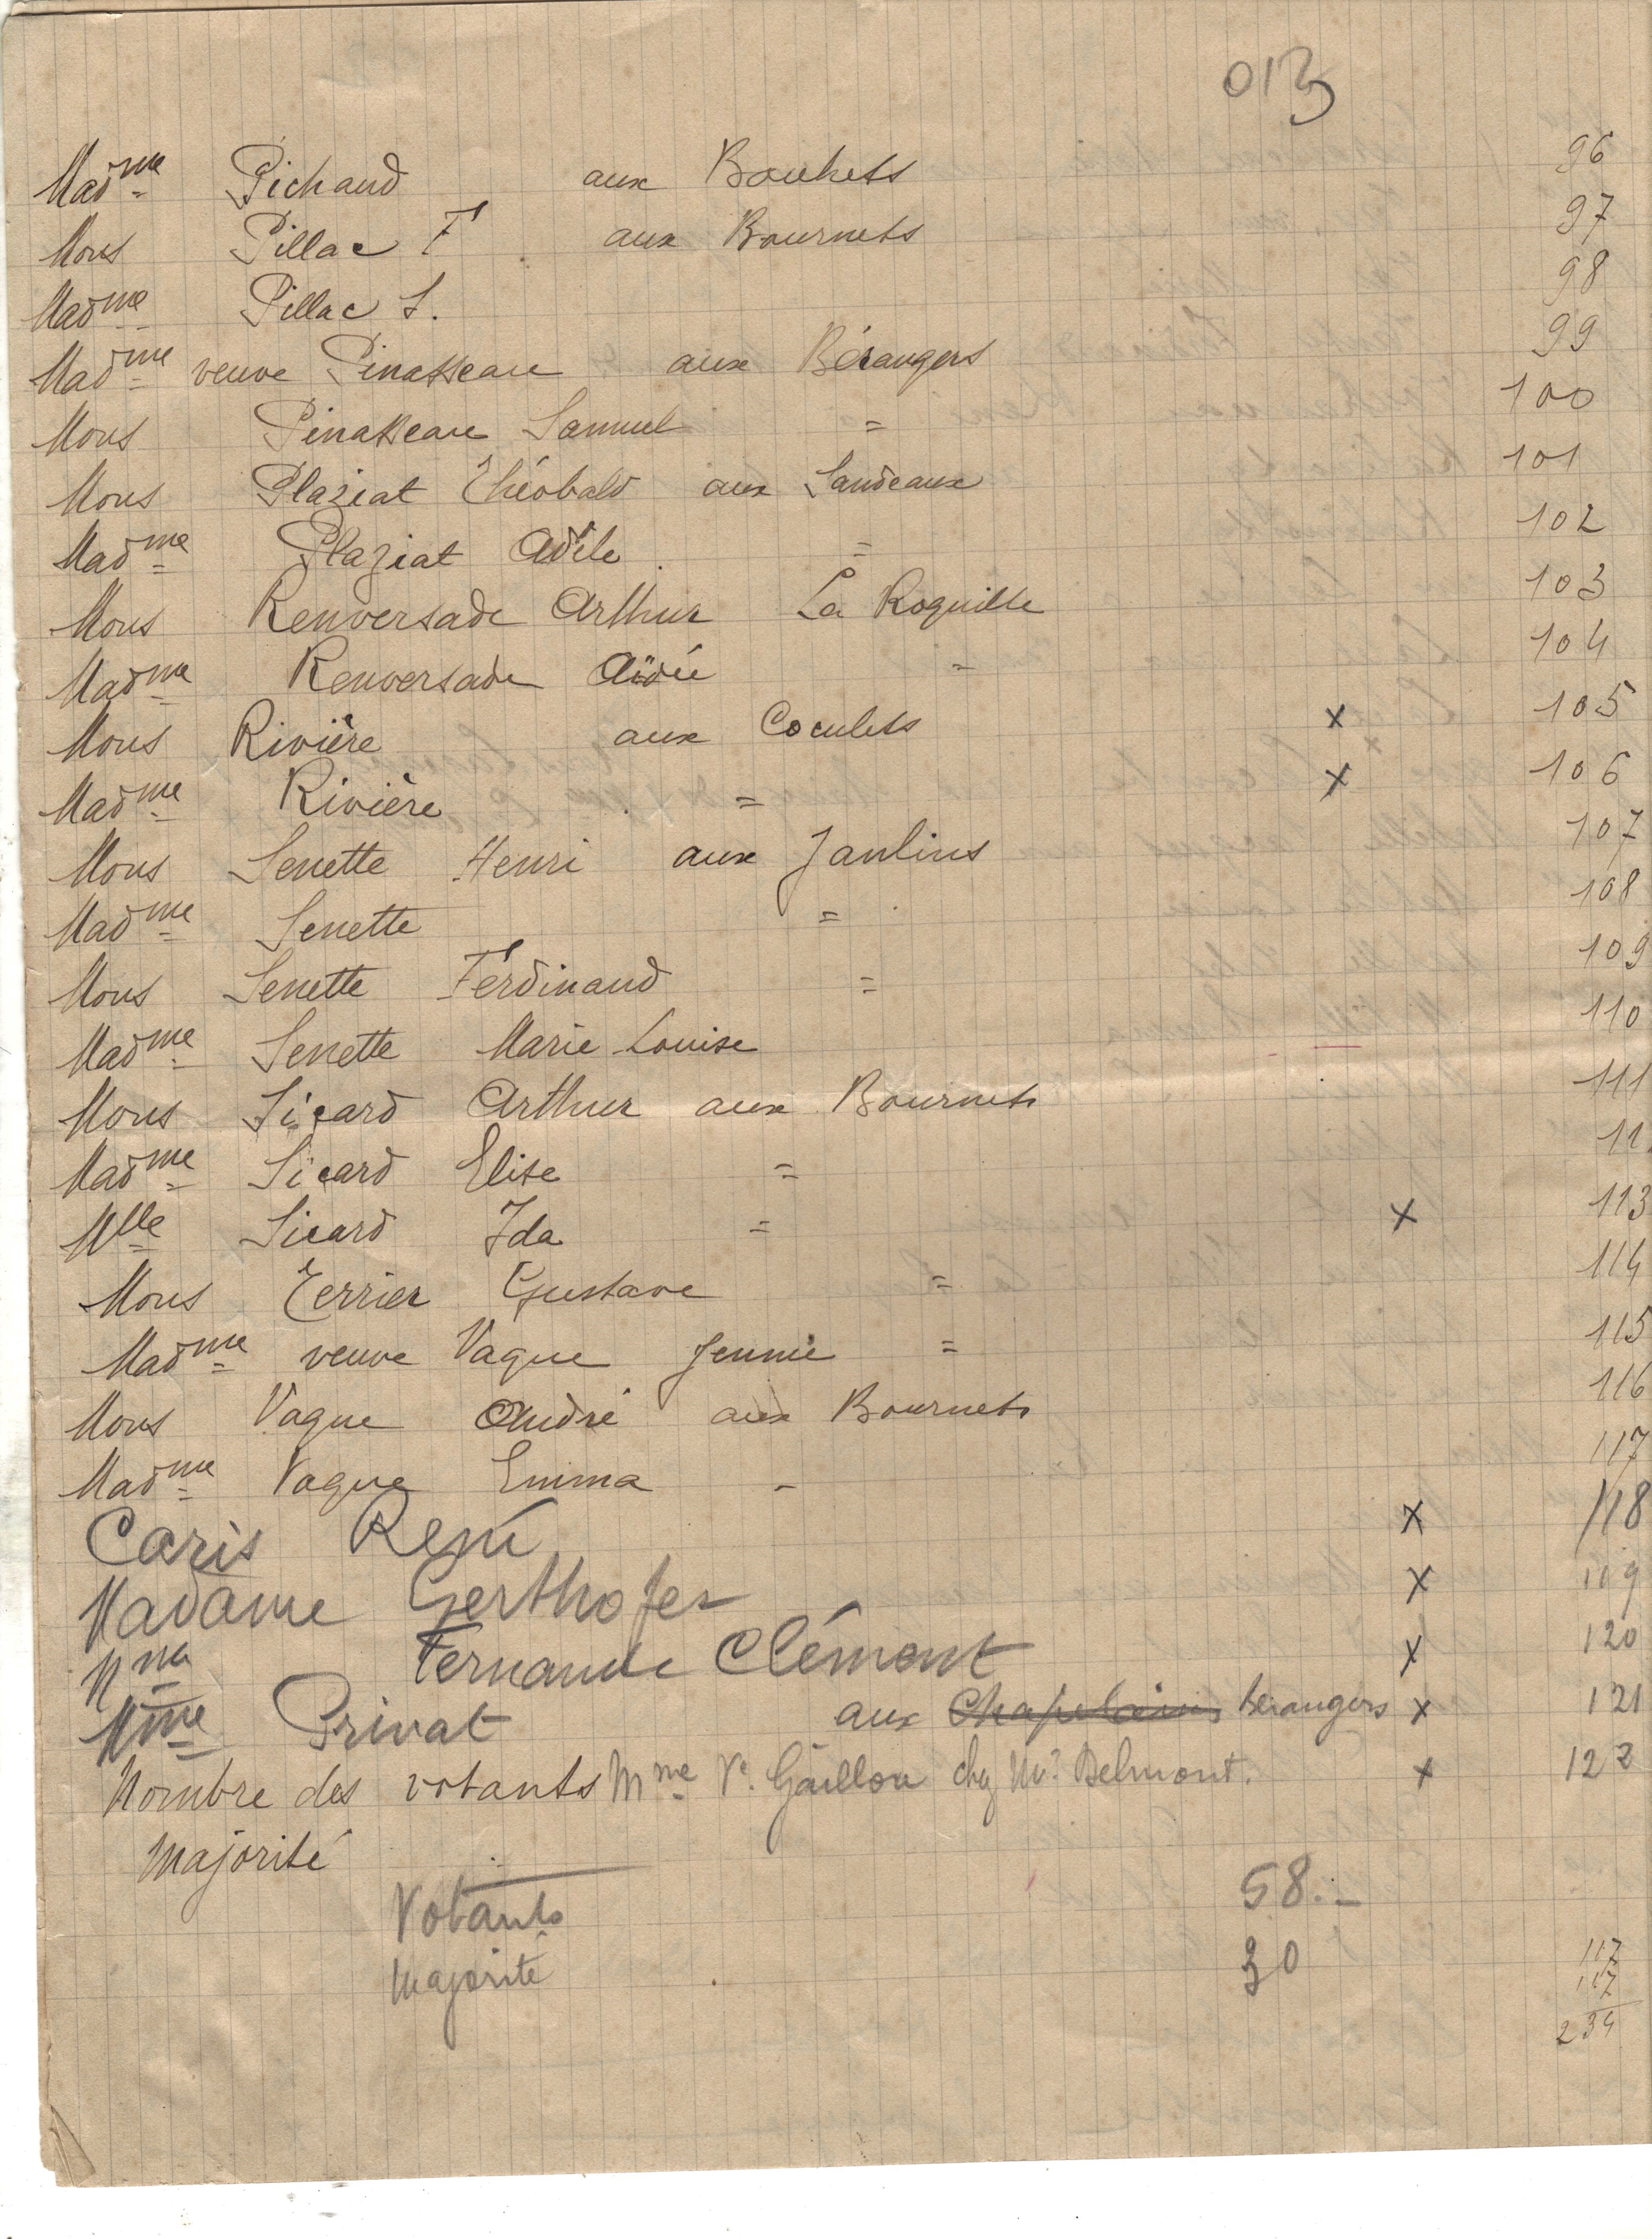 013
Madme Pichaud aux Bouhets 96
Mons Pillac F aux Bournets 97
Madme Pillac S. 98
Madme veuve Pinasseau aux Bérangers 99
Mons Pinasseau Samuel = 100
Mons Plaziat Théobald aux Sandeaux 101
Madme Plaziat Adèle = 102
Mons Renversade Arthur La Roquille 103
Madme Renversade Aïdée = 104
Mons Rivière aux Coculets x 105
Madme Rivière = x 106
Mons Senette Henri aux Jaulins 107
Madme Senette = 108
Mons Senette Ferdinand = 109
Madme Senette Marie Louise 110
Mons Sicard Arthur aux Bournets 111
Madme Sicard Elise = 11
Mlle Sicard Ida = x 113
Mons Terrier Gustave = 114
Madme veuve Vague Jennie = 115
Mons Vague André aux Bournets 116
Madme Vague Emma - 117
Caris René x 118
Madame Gerthofer x 119
Mme Fernande Clément x 120
Mme Privat aux Chapelains Bérangers x 121
Nombre des votants Mme Ve. Gaillou chez Mr. Delmont. x 122
Majorité
Votants 58.-
Majorité 30
117
117
234